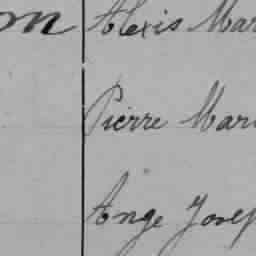 Alexis Mar
Pierre Mari
Ange Josep